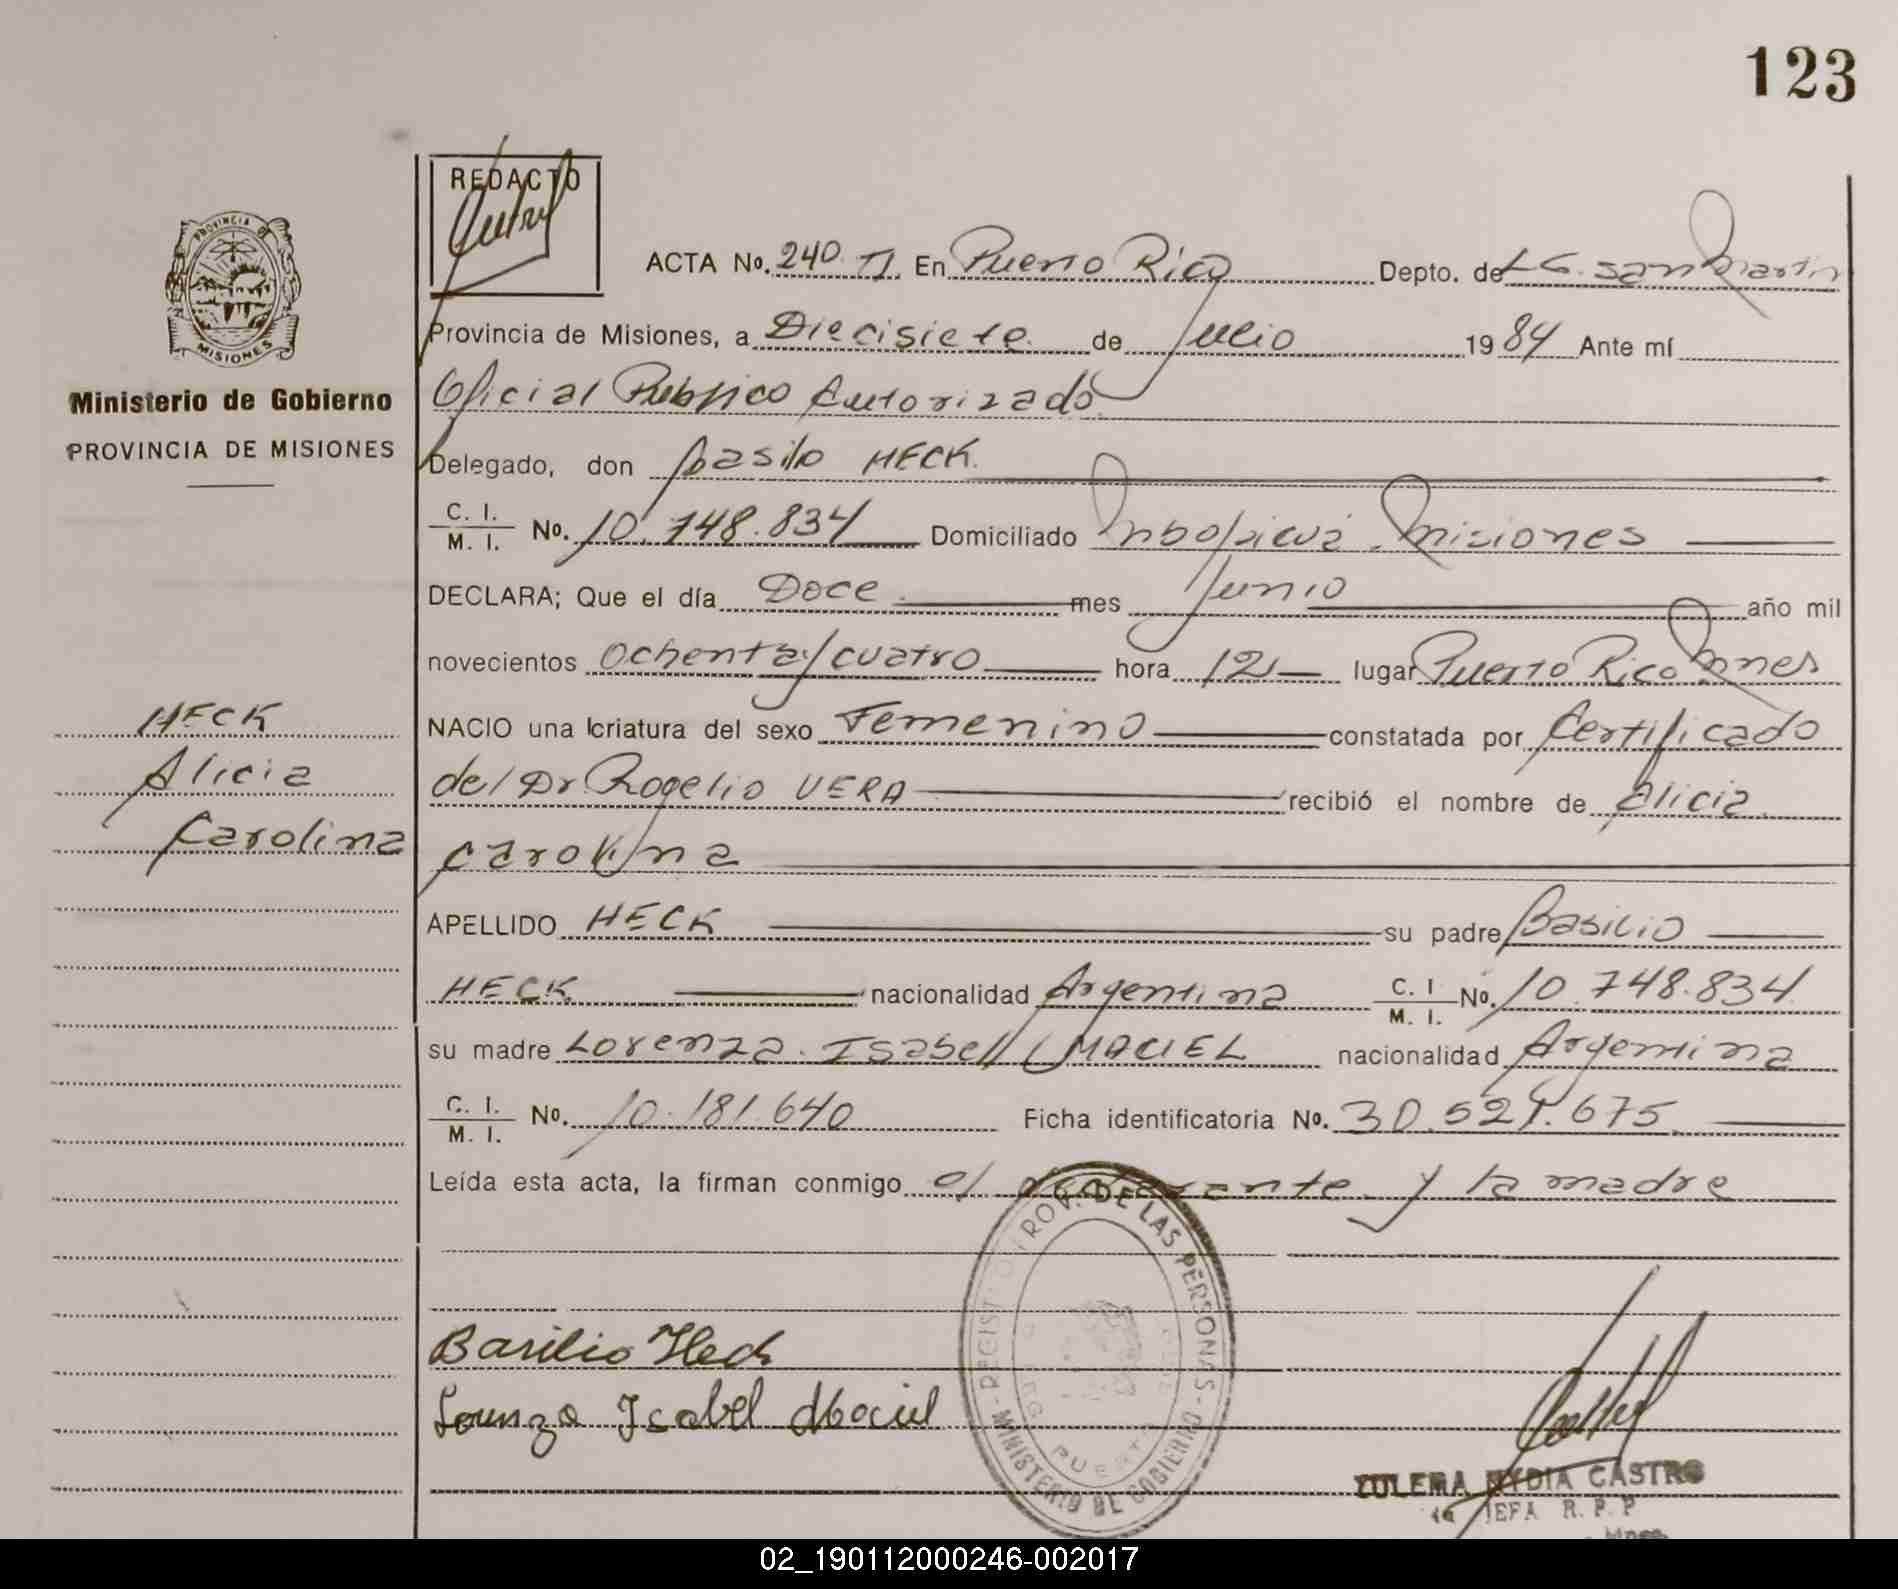 123
REDACTO
PROVINCIA DE
MISIONES
Ministerio de Gobierno
PROVINCIA DE MISIONES
HECK
Alicia
Carolina
ACTA No. 240. TI. En Puerto Rico Depto. de L.G. San Martin
Provincia de Misiones, a Diecisiete de Julio 1984 Ante mí
Oficial Publico Autorizado
Delegado, don Basilio HECK.
C. I.
M. I. No. 10.748.834 Domiciliado Misiones
DECLARA; Que el día Doce mes Junio año mil
novecientos ochenta y cuatro hora 12 lugar Puerto Rico Mnes
NACIO una criatura del sexo Femenino constatada por Certificado
del Dr. Rogelio VERA recibió el nombre de Alicia
Carolina
APELLIDO HECK su padre Basilio
HECK nacionalidad Argentina C. I
M. I. No. 10.748.834
su madre Lorenza Isabel MACIEL nacionalidad Argentina
C. I.
M. I. No. 10.181.640 Ficha identificatoria No. 30.521.675
Leída esta acta, la firman conmigo el y la madre
Basilio Heck
Lorenza Isabel Maciel
REGIST PROV. DE LAS PERSONAS - MINISTERIO DE GOBIERNO
ZULEMA NYDIA CASTRO
JEFA R. P. P
02_190112000246-002017